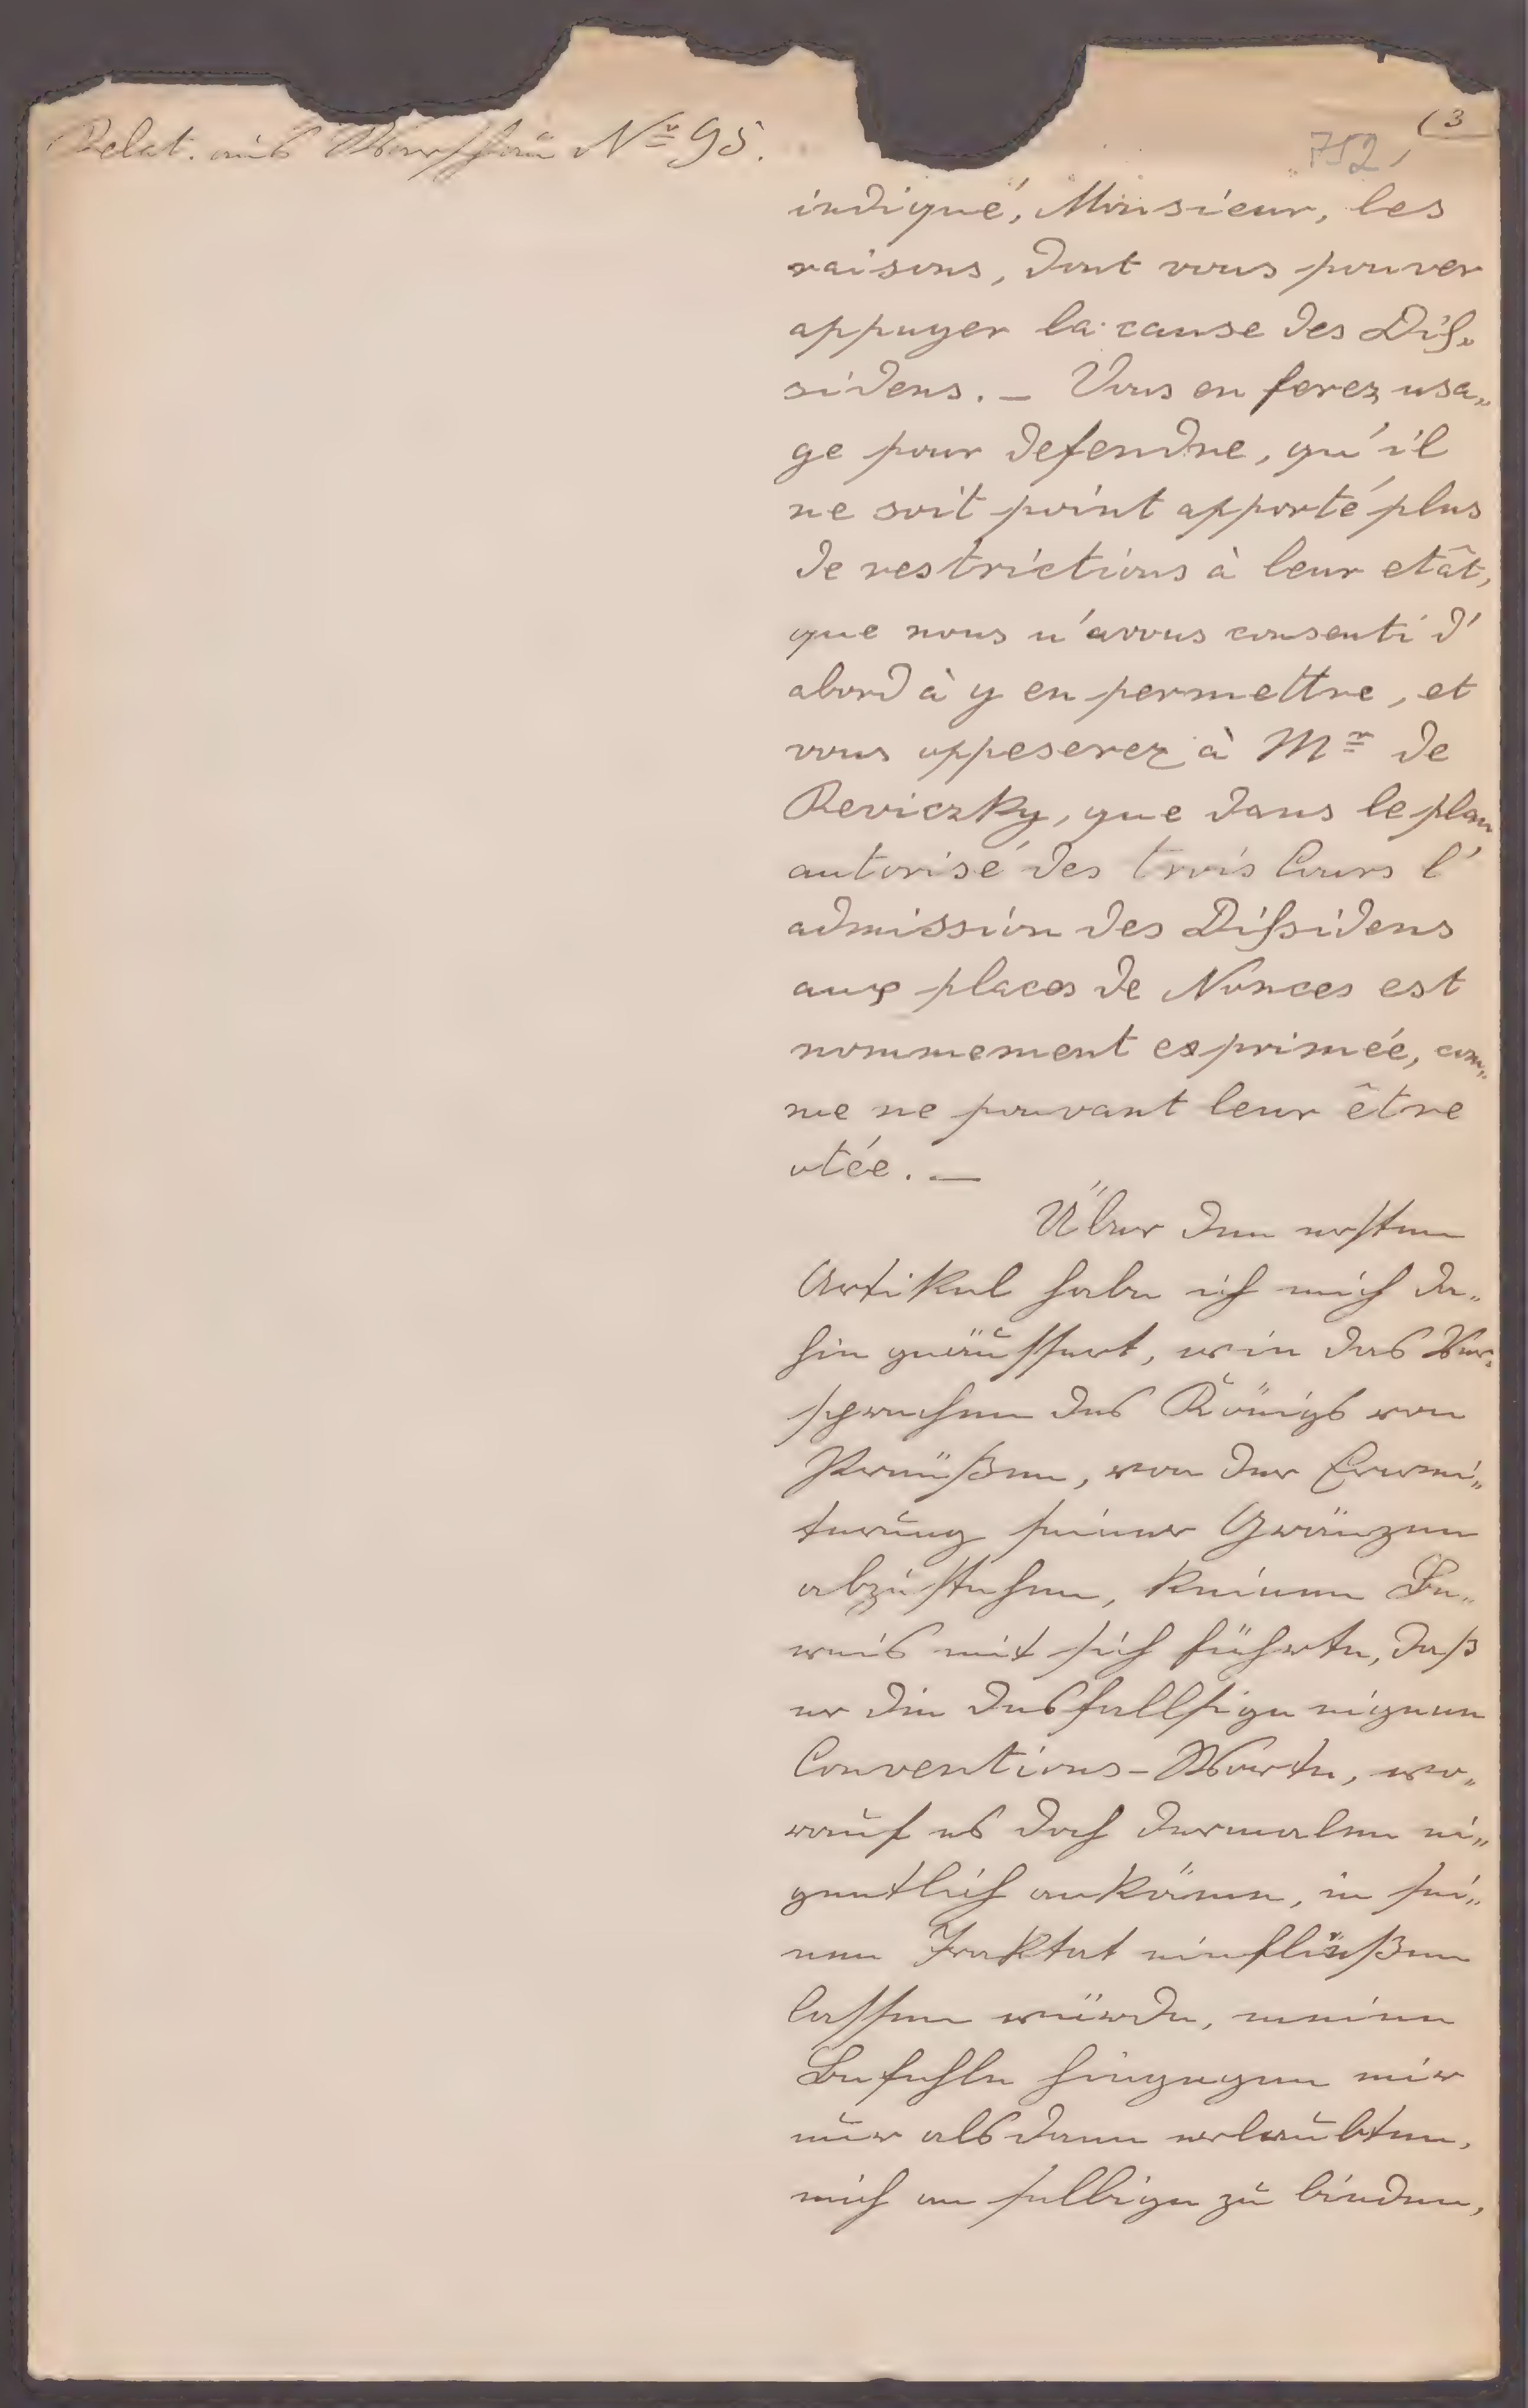 Relat. aus Warschau Nr 95.
(3
752,
indiqué, Monsieur, les
raisons, dont vous pouver
appuyer la cause des Diſ„
sidens. — Vous en ferez usa„
ge pour defendre, qu'il
ne soit point apporté plus
de restrictions à leur etât,
que nous n'avons consenti d'
abord à y en permettre, et
vous oppeserez à Mr de
Reviczky, que dans le plan
autorisé des trois Cours l'
admission des Diſsidens
aux places de Nonces est
nommement exprimée, com„
me ne pouvant leur être
otée. —
Über den ersten
Artikel habe ich mich da„
hin geäussert, wie das Ver„
sprechen des Königs von
Preüßen, von der Erwei„
terung seiner Gränzen
abzustehen, keinen Be„
weis mit sich führte, daß
er die desfallsige eignen
Conventions-Worte, wo„
rauf es doch dermalen ei„
gentlich ankäme, in sei„
nen Traktat einfließen
lassen würde, meine
Befehle hingegen mir
nur alsdann erlaubten,
mich an selbige zu binden,